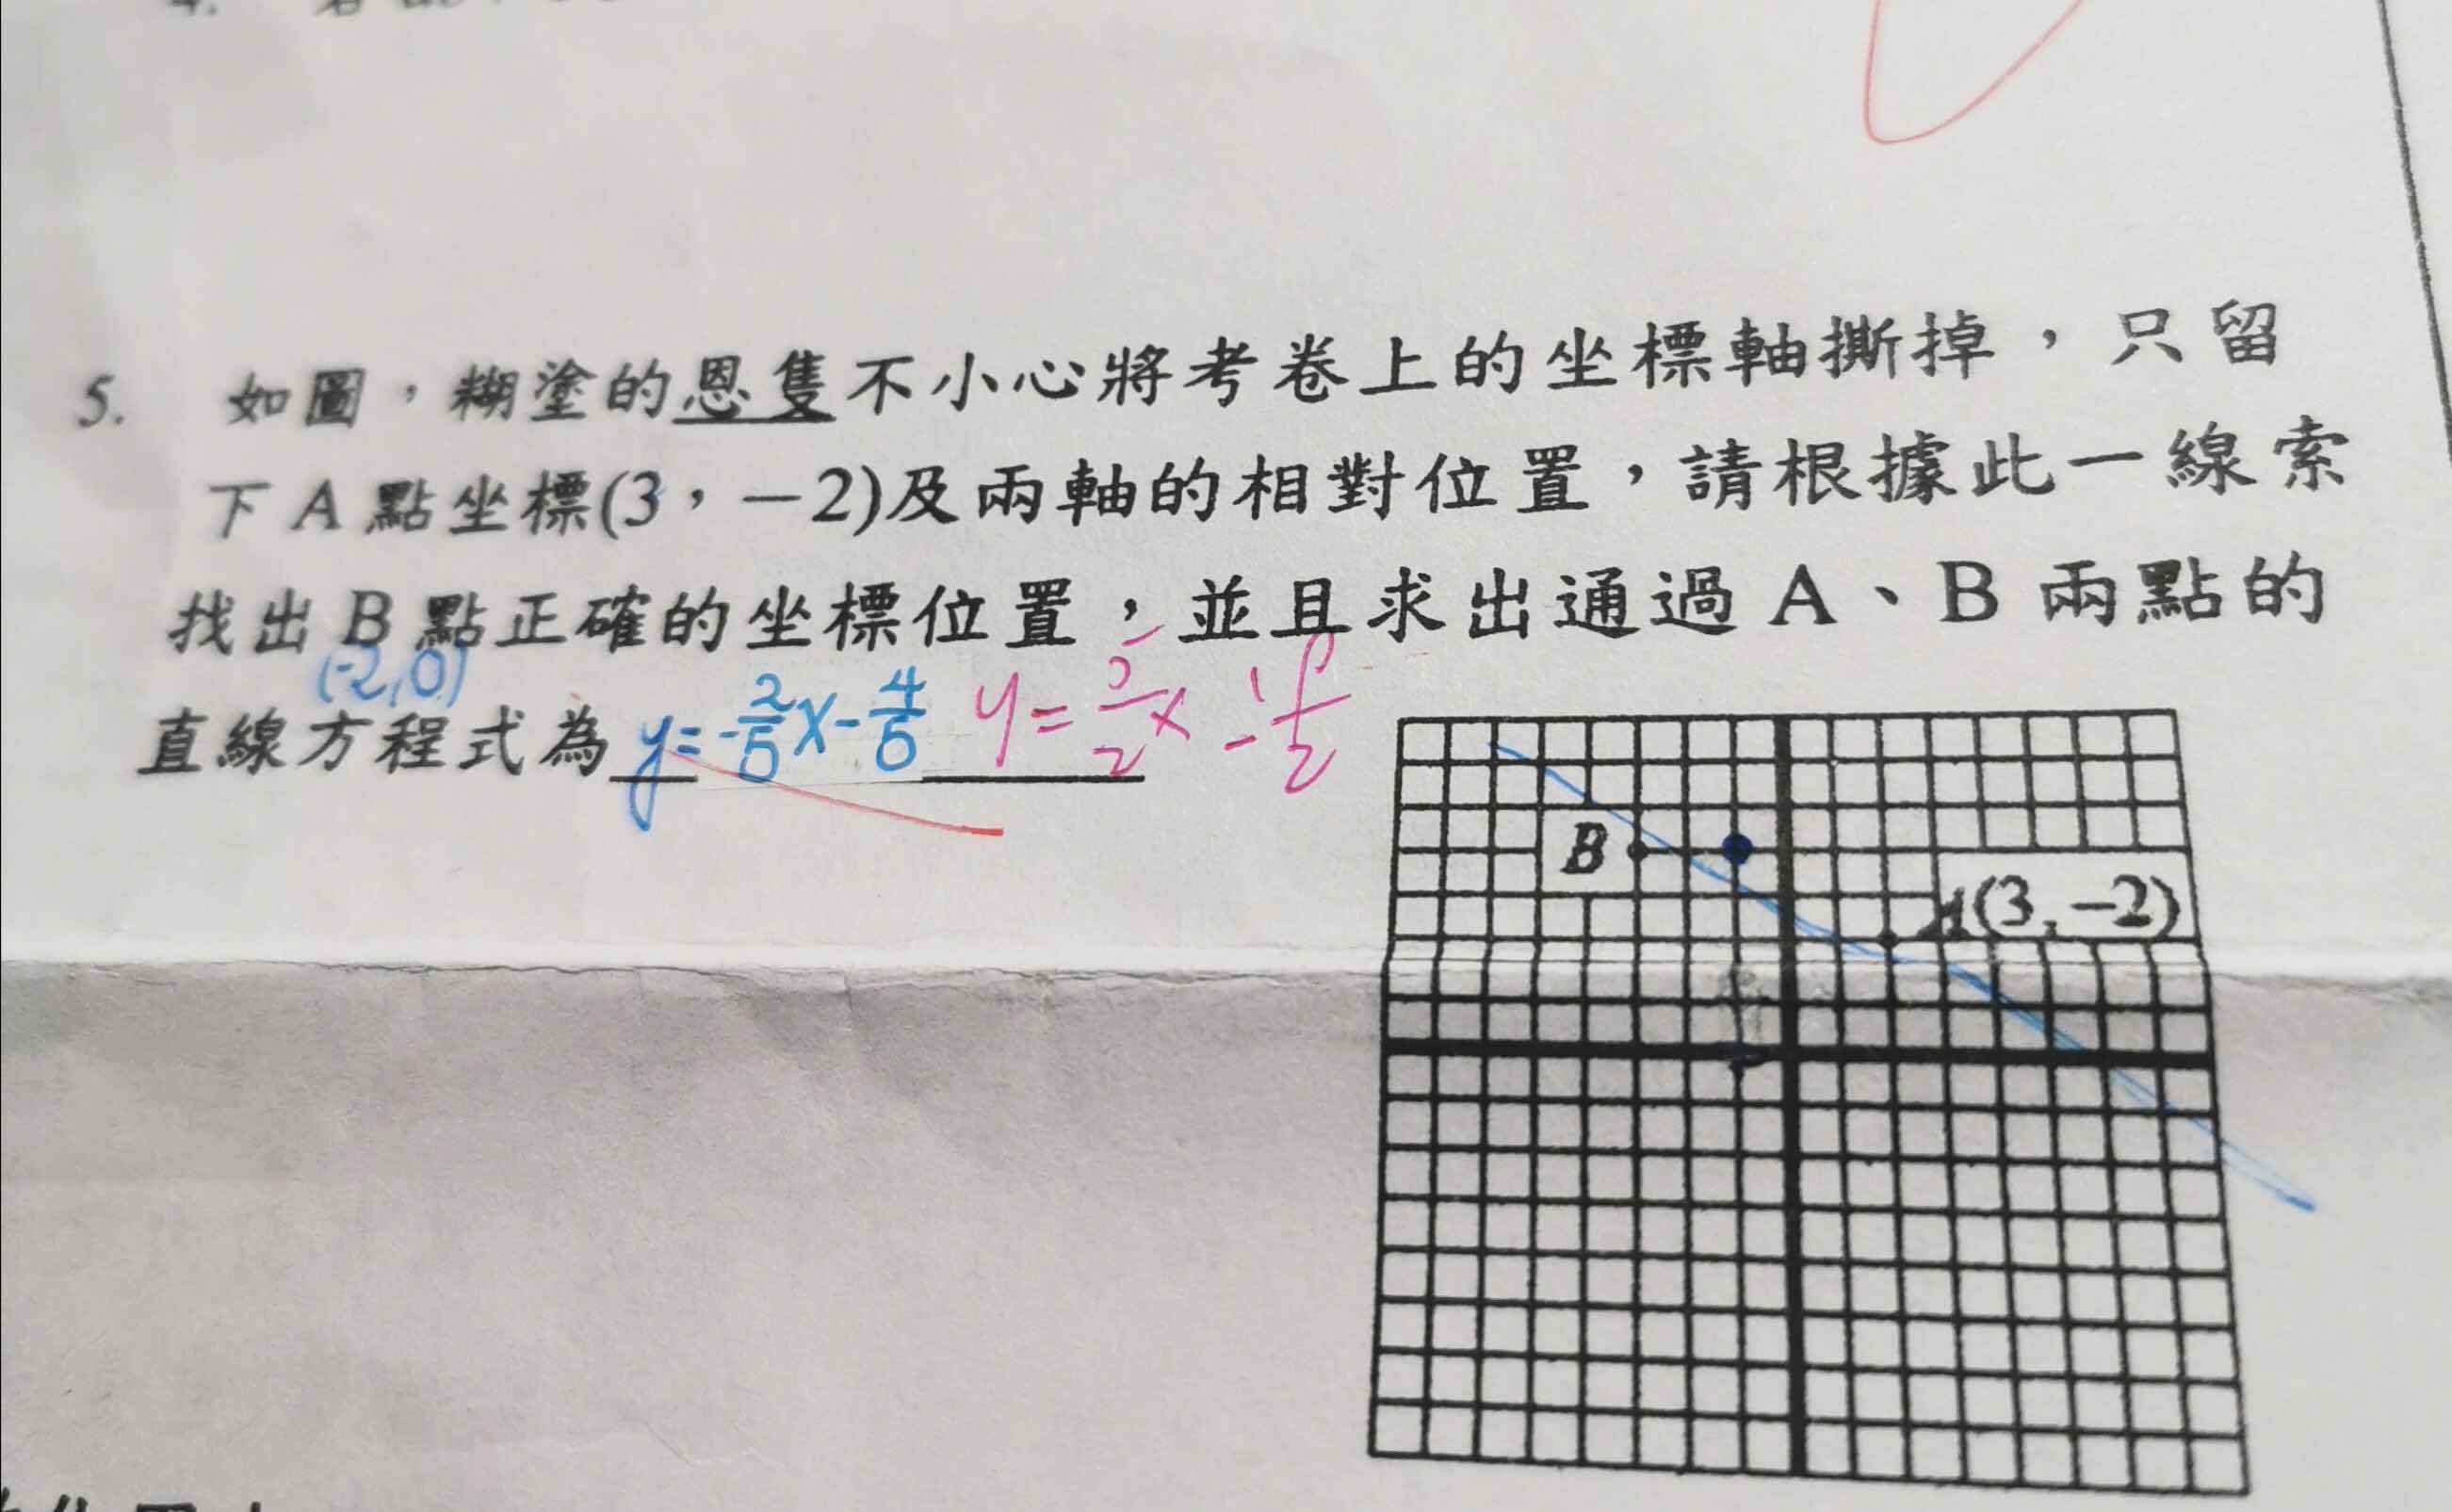 5. 如圖，糊塗的恩隻不小心將考卷上的坐標軸撕掉，只留
下A點坐標(3，－2)及兩軸的相對位置，請根據此一線索
找出B點正確的坐標位置，並且求出通過A、B兩點的
(-2,0)
直線方程式為 y=-2/5x-4/5 y=5/2x
B
A(3,-2)